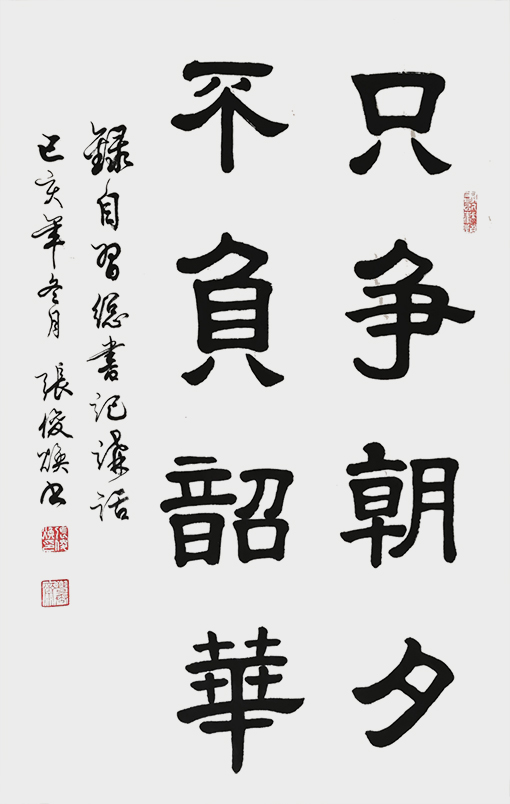 只争朝夕
不負韶華
錄自習總書記講話
己亥年冬月 張俊煥书